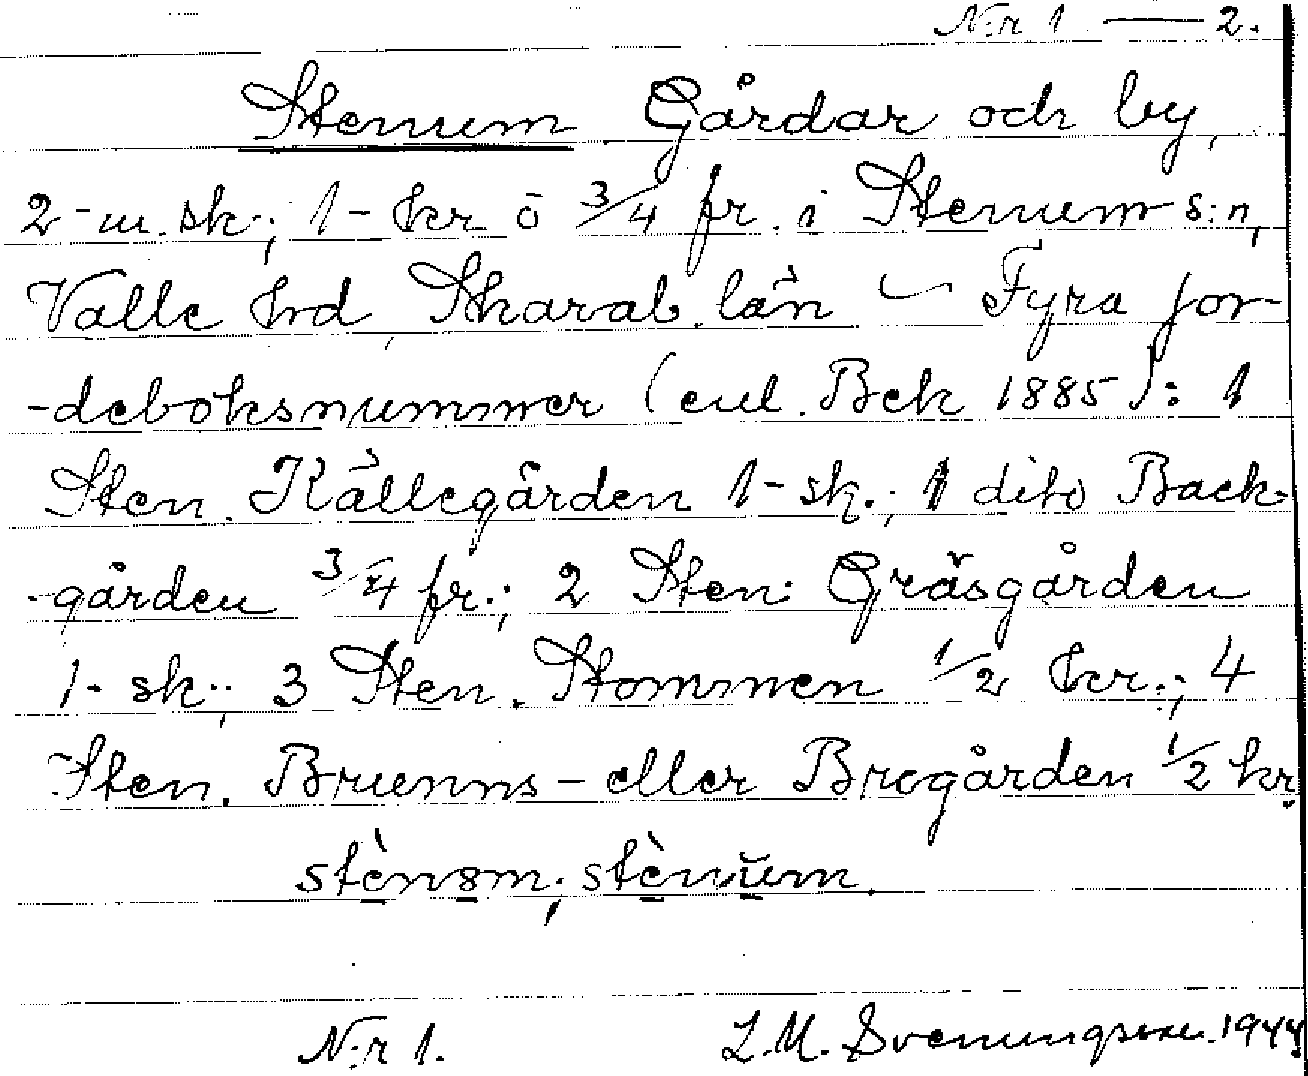 N:r 1 — 2.
Stenum Gårdar och by,
2-m. sk.; 1-kr o 3/4 fr. i Stenum s:n,
Valle hrd, Skarab. län — Fyra jor-
-deboksnummer (enl. Bek 1885): 1
Sten. Källegården 1-sk.; 1 dito Back-
-gården 3/4 fr.; 2 Sten. Gräsgården
1-sk.; 3 Sten. Stommen 1/2 kr.; 4
Sten. Brunns- eller Brogården 1/2 kr.
stèn8m; stènŭm.
N:r 1. L.M. Svenungsson. 1944.